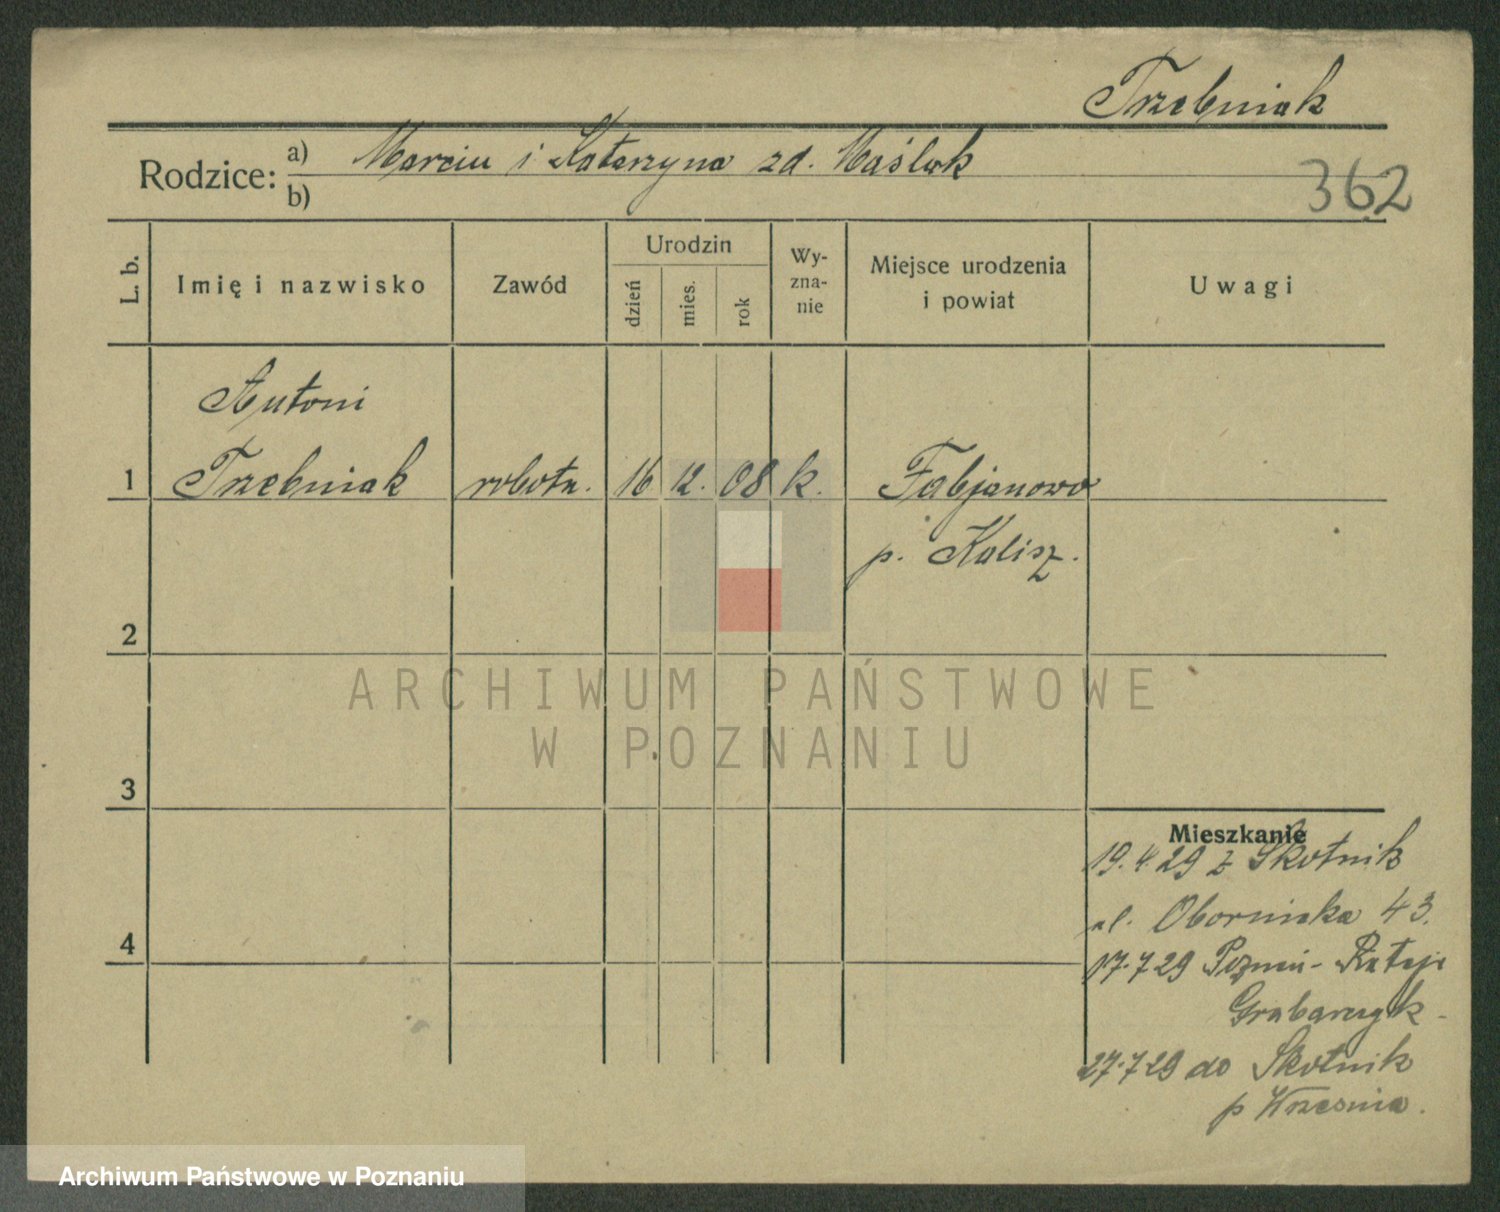 Trzebniak
Rodzice: a) Marcin i Katarzyna zd. Maślak
b)
362
L. b.
Imię i nazwisko
Zawód
Urodzin
dzień
mies.
rok
Wy-
zna-
nie
Miejsce urodzenia
i powiat
Uwagi
Antoni
1 Trzebniak robotn. 16 12. 08 k. Fabjanowo
p. Kalisz.
2
3
4
Mieszkanie
19.4.29 z Skotnik
ul. Obornicka 43.
17.7.29 Poznań - Rataje
Grabarczyk -
27.7.29 do Skotnik
p Września.
ARCHIWUM PAŃSTWOWE
W POZNANIU
Archiwum Państwowe w Poznaniu